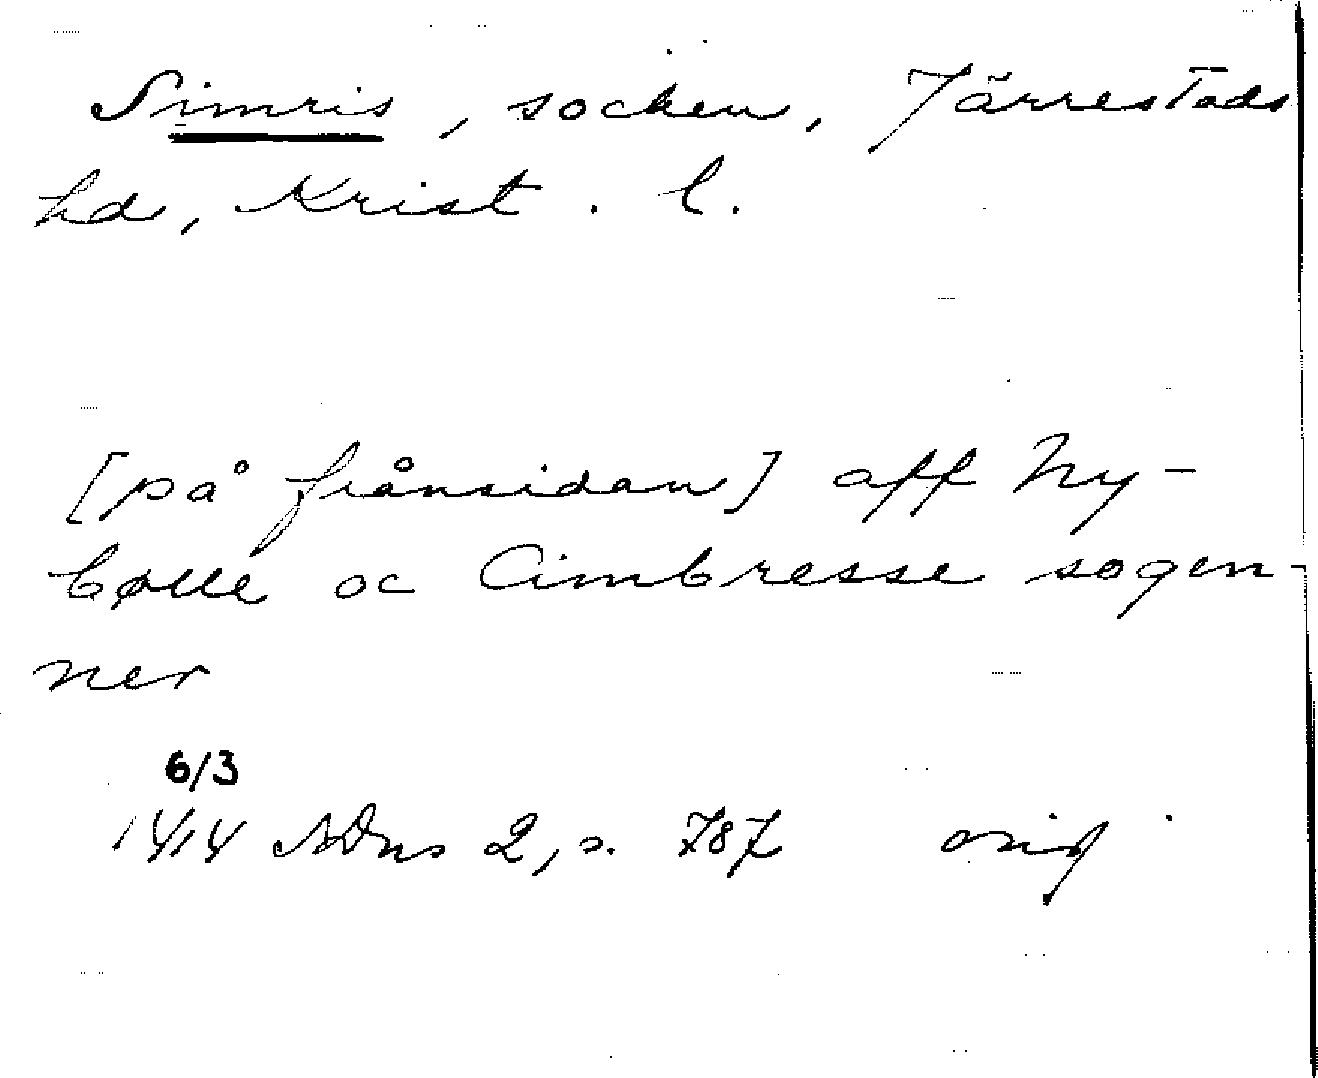 Simris, socken, Järrestads
hd, Krist. l.
[på frånsidan] aff Ny-
bølle oc Cimbresse sogen-
ner
6/3
1414 SDns 2, s. 787 orig.